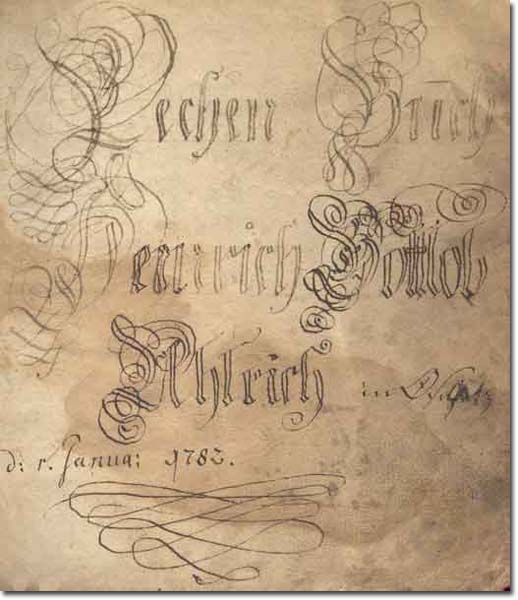 Rechen Buch
Heinrich Gottlob
Uhlrich in
d: 1. Janua: 1782.